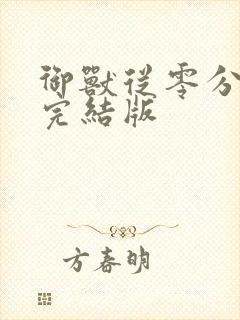 御獸從零分
完結版
方春明